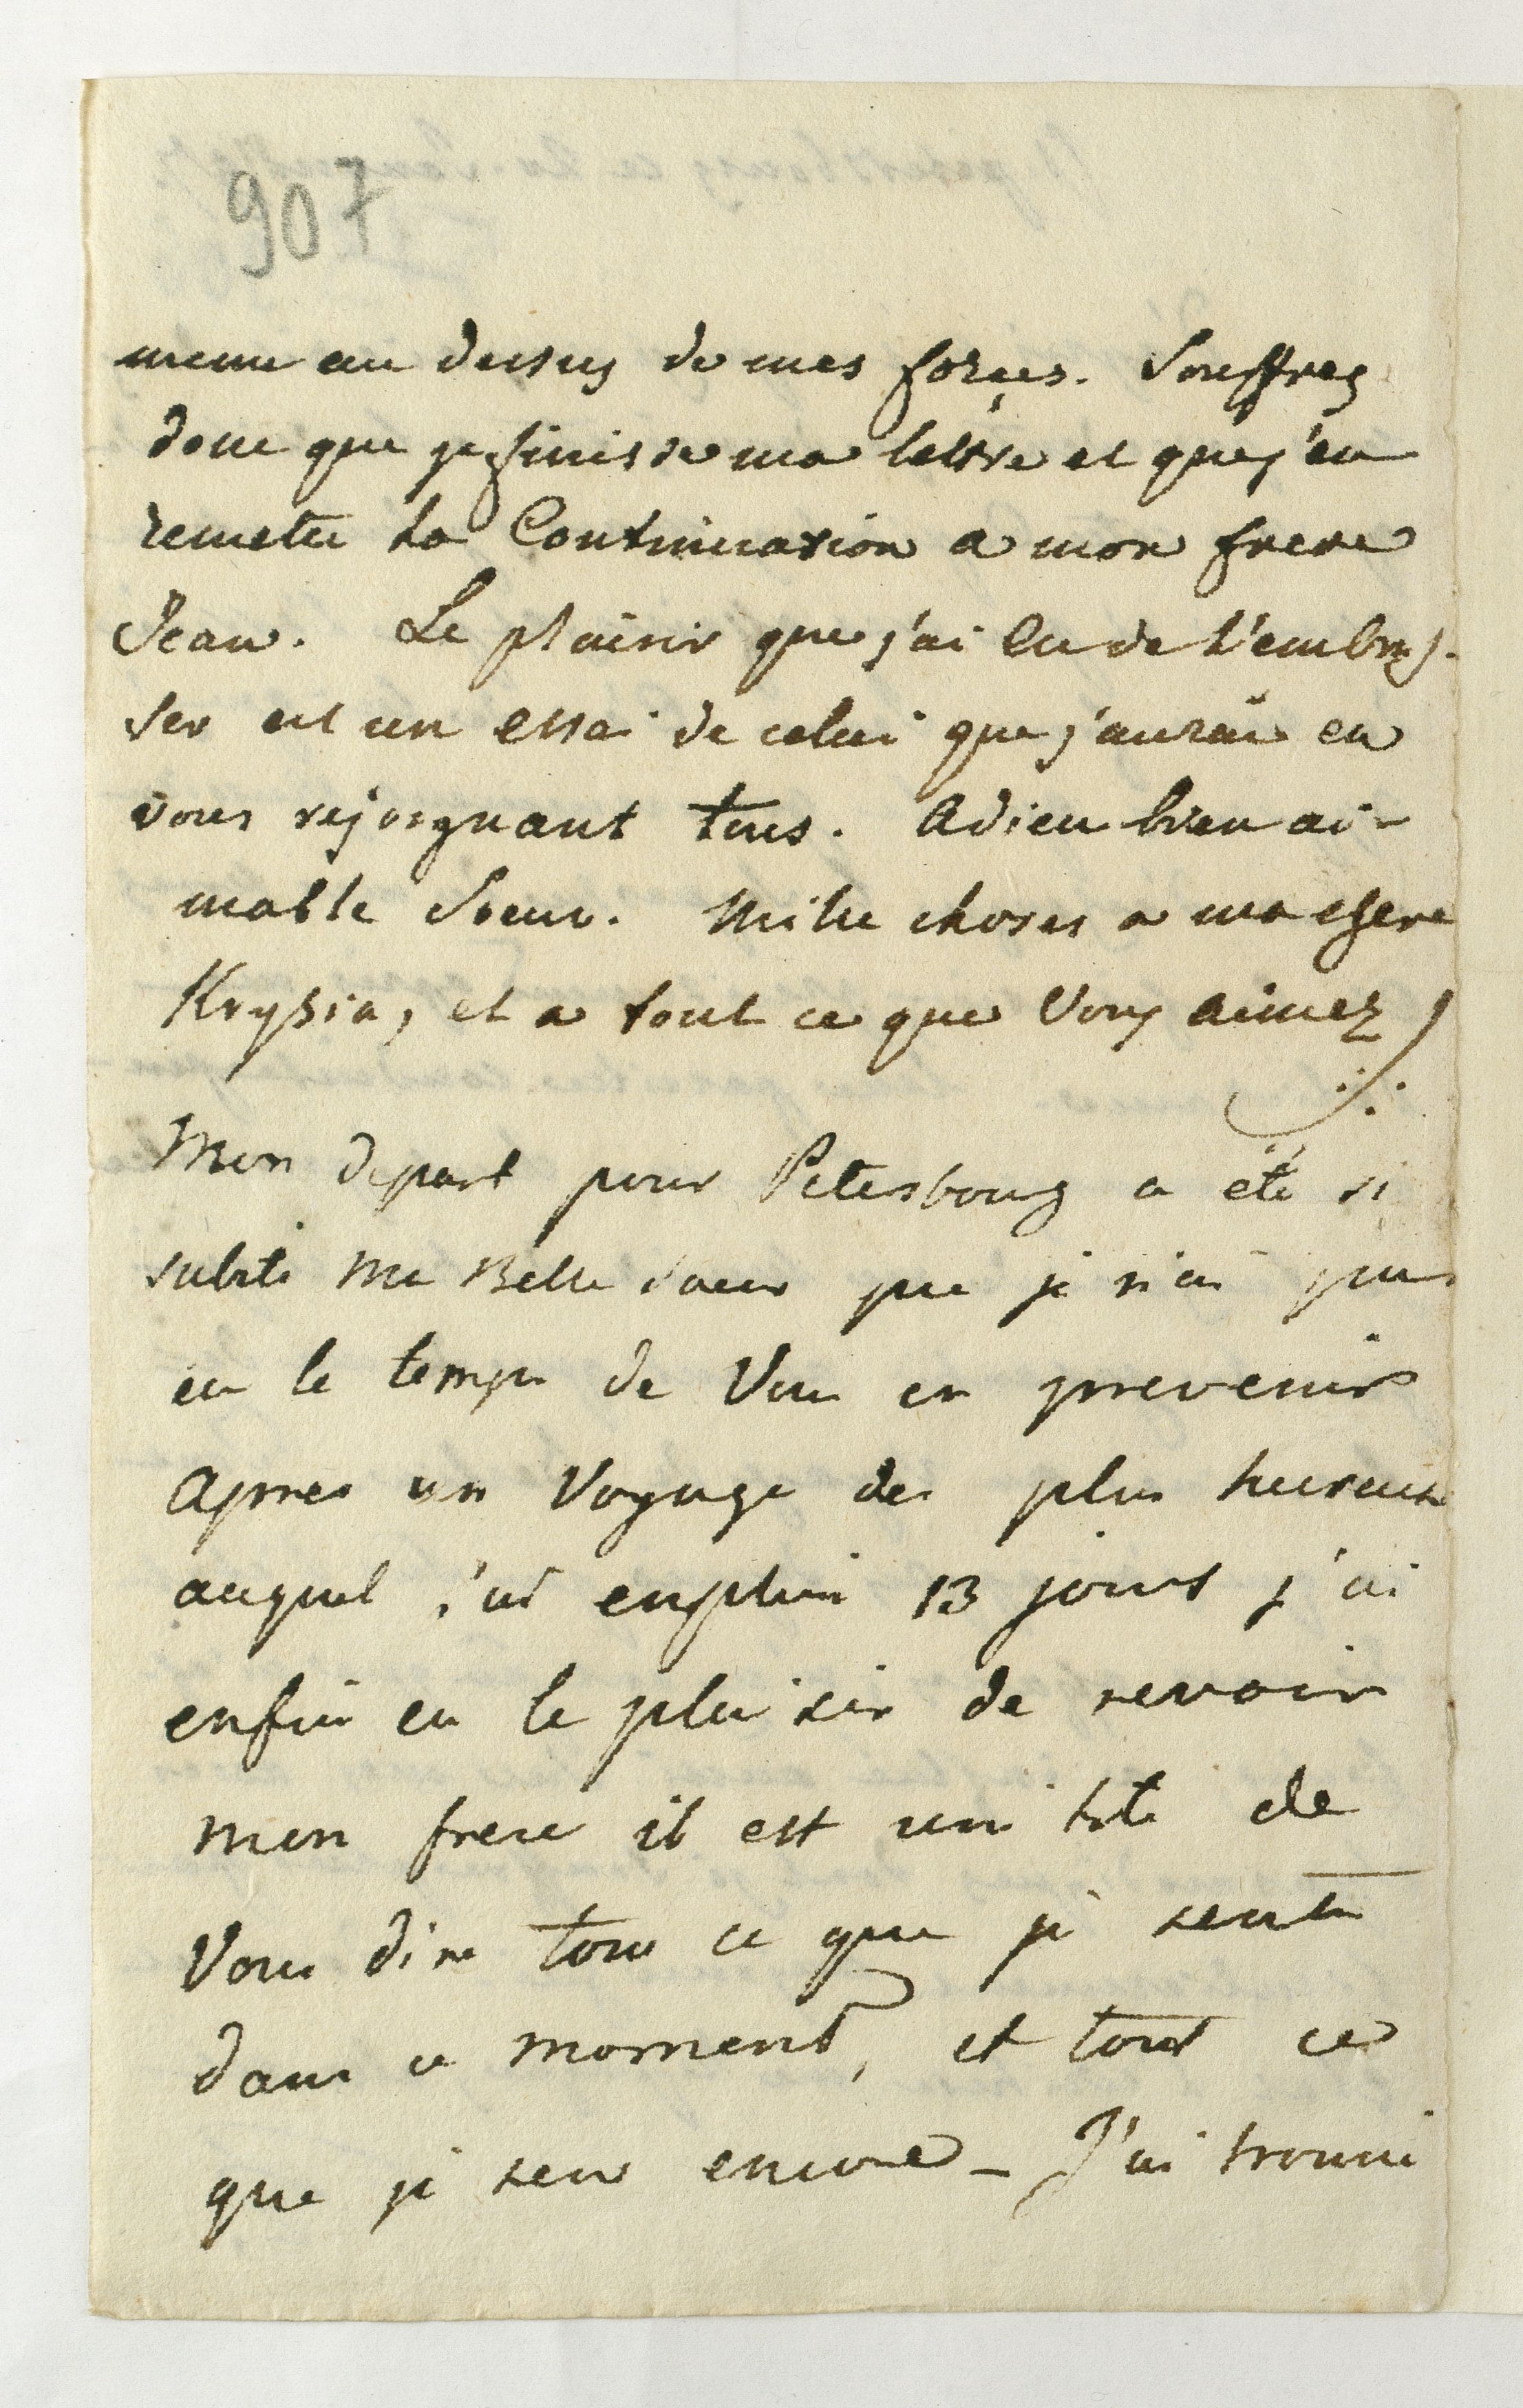 907
meme au dessus de mes forçes. Souffrez
donc que je finisse ma lettre et que j'en
remette la Continuation a mon frere
Jean. Le plaisir que j'ai eu de l'embras-
ser est un essai de celui que j'aurai en
vous rejoignant tous. Adieu bien ai-
mable Soeur. Mille choses a ma chere
Krysia, et a tout ce que Vous aimez!
Mon depart pour Petersbourg a été si
subite Ma Belle soeur que je n'ai pas
eu le temps de Vous en prevenir
Apres un Voyage des plus hureux
auquel j'ai emploié 13 jours j'ai
enfin eu le plaisir de revoir
mon frere il est inutile de
Vous dire tous ce que je sentis
dans ce moment, et tout ce
que je sens encore – J'ai trouvé